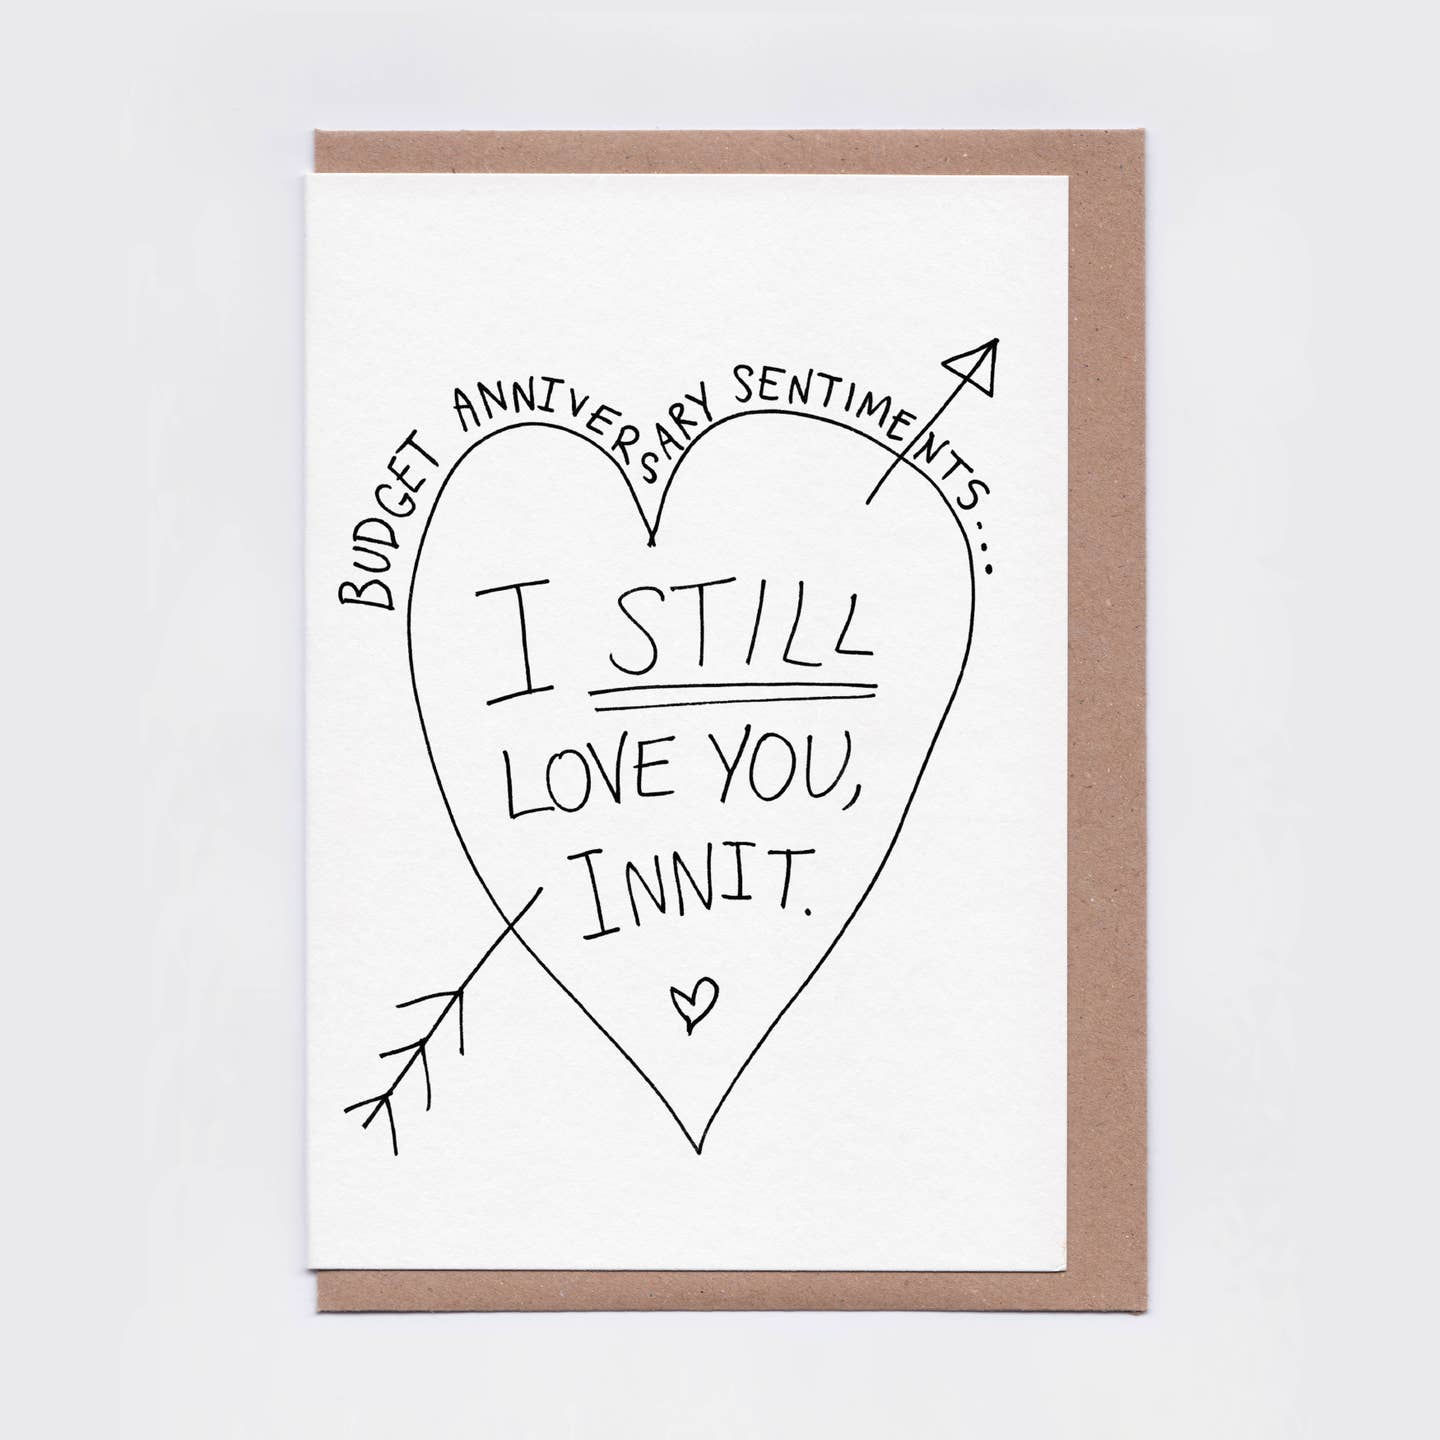 BUDGET ANNIVERSARY SENTIMENTS...
I STILL
LOVE YOU,
INNIT.